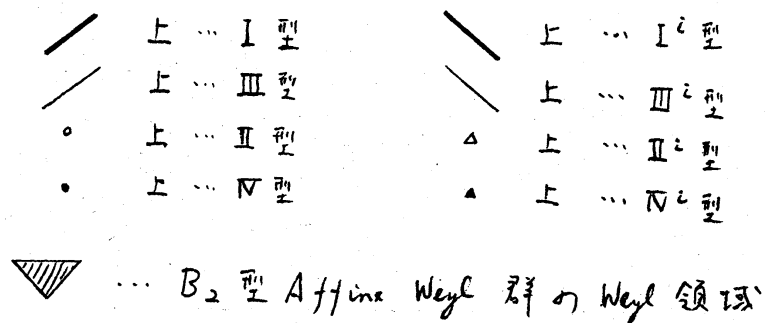 上 … I 型 上 … I^i 型
上 … III 型 上 … III^i 型
上 … II 型 上 … II^i 型
上 … IV 型 上 … IV^i 型
… B₂ 型 Affine Weyl 群の Weyl 領域